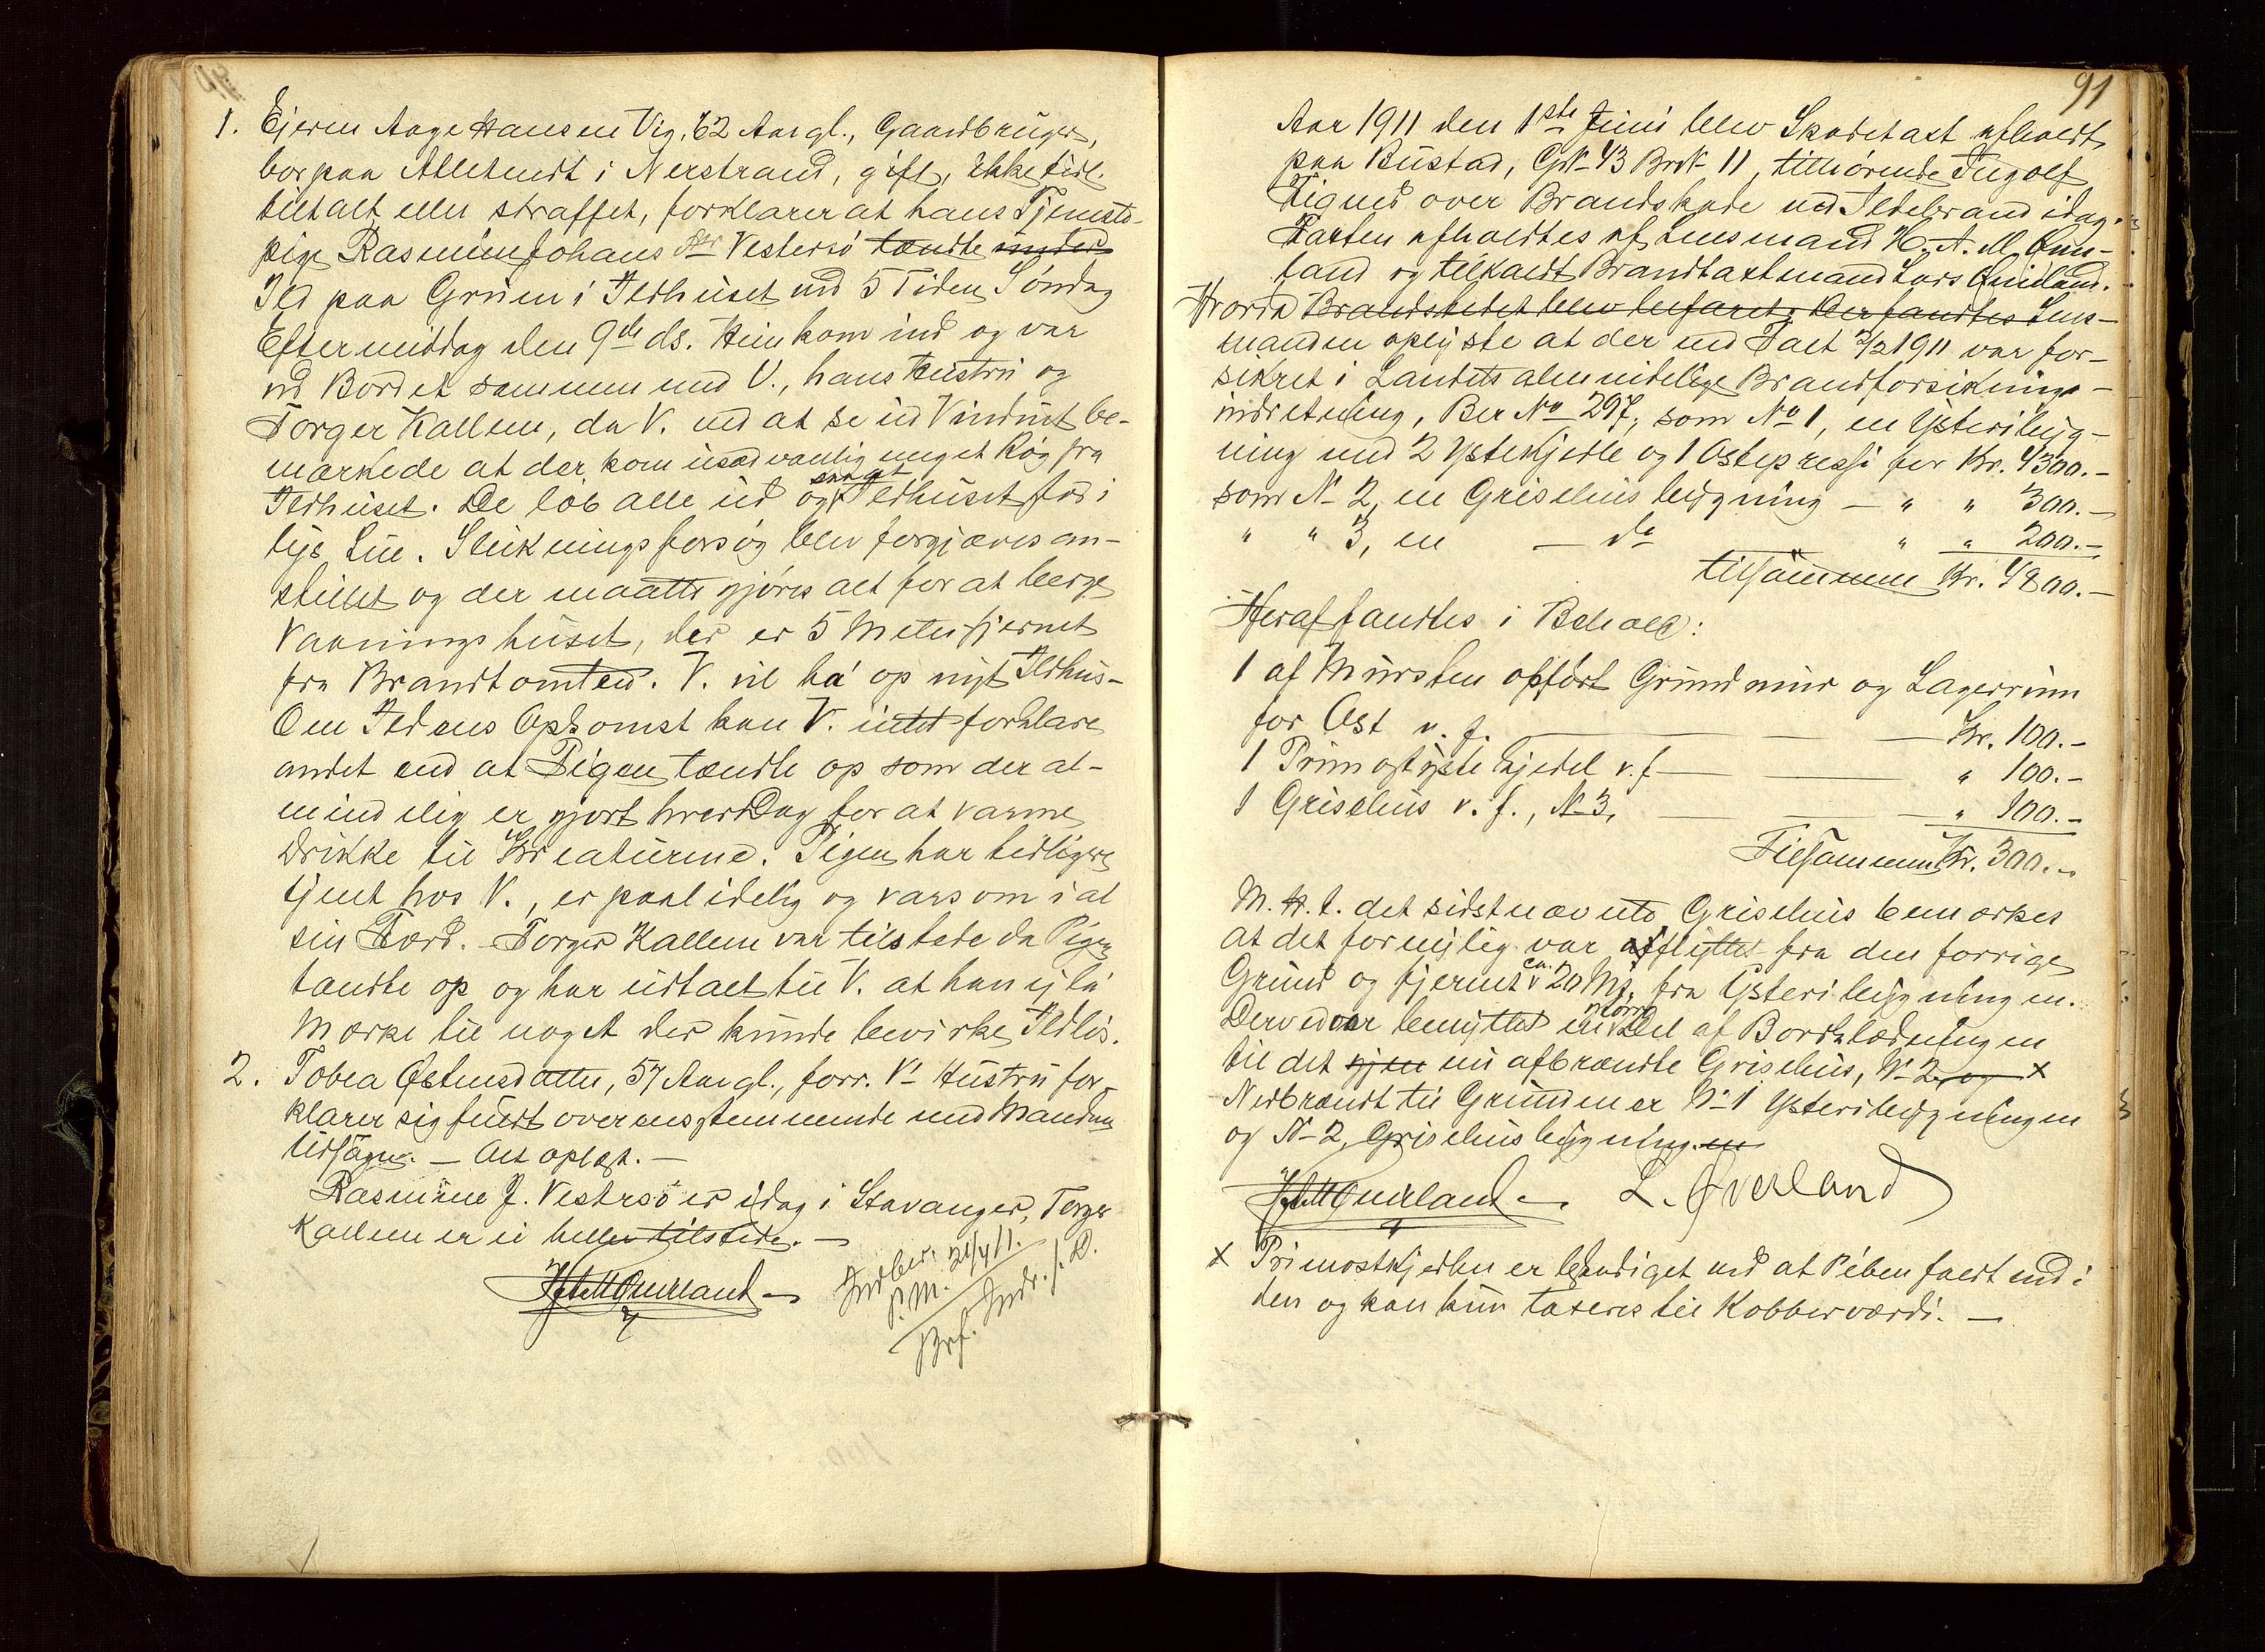 1. Ejeren Aage Hansen Vig, 62 Aar gl., Gaardbruger,
bor paa i Nerstrand, gift, ikke tidl.
tiltalt eller straffet, forklarer at hans Tjeneste-
pige Rasmine Johansdtr Vestersø tændte under
Ild paa Gruen i Ildhuset ved 5 Tiden Søndag
Eftermiddag den 9de ds. Hun kom ind og var
ved Bordet sammen med V., hans Hustru og
Torger Kallem, da V. ved at se ud Vinduet be-
mærkede at der kom usædvanlig meget Røg fra
Ildhuset. De løb alle ud og Ildhuset stod i
lys Lue. Slukningsforsøg blev forgjæves an-
stillet og der maatte gjøres alt for at berge
Vaaningshuset, der er 5 Meter fjernet
fra Brandtomten. V. vil ha' op nyt Ildhus-
Om Ildens Opkomst kan V. intet forklare
andet end at Pigen tændte op som der al-
mindelig er gjort hver Dag for at varme
Drikke til Kreaturene. Pigen har tidligere
tjent hos V., er paalidelig og varsom i al
sin Færd. - Torger Kallem var tilstede da Pigen
tændte op og har udtalt til V. at han ej la'
Mærke til noget der kunde bevirke Ildløs.
2. Tobea Østensdatter, 57 Aar gl., forr. V- Hustru for-
klarer sig fuldt overensstemmende med Mandens
Udsagn. - Alt oplæst. -
Rasmine J. Vestersø er idag i Stavanger, Torger
Kallem er ei heller tilstede. -
H. A. M. Qverland -
Indber.
P.M. 21/4 11.
Brf. Indr. s. D.
91
Aar 1911 den 1ste Juni blev Skadetaxt afholdt
paa Bustad, GN- 43 BrN- 11, tilhørende Ingolf
Vigned over Brandskade ved Ildebrand idag.
Taxten afholdtes af Lensmand H. A. M. Qver-
land og tilkaldt Brandtaxtmand Lars Qverland.
Hvorda Brandstedet blev befaret: Der fandtes Lens-
manden oplyste at der ved Taxt 2/2 1911 var for-
sikret i Landets almindelige Brandforsikrings-
indretning, Ber No 297, som No 1, en Ysteribyg-
ning med 2 Ystekjedle og 1 Ostepresse for Kr. 4300.-
som N- 2, en Grisehusbygning - " " 300.-
" " 3, en - do " " 200.-
tilsammen Kr. 4800.-
Heraf fandtes i Behold:
1 af Mursten opført Grundmur og Lagerrum
for Ost v. f. - Kr. 100.-
1 Primostystekjedel v. f. - " 100.-
1 Grisehus v. f., N- 3, - " 100.-
Tilsammen Kr. 300.-
M. H. t. det sidstnævnte Grisehus bemærkes
at det fornylig var afflyttet fra den forrige
Grund og fjernet ca. 20 Mt. fra Ysteribygningen.
Derved var benyttet en større Del af Bordklædningen
til det igjen nu afbrændte Grisehus, N- 2, og x
Nedbrændt til Grunden er N- 1 Ysteribygningen
og N- 2, Grisehusbygningen
H. A. M. Qverland -. L. Qverland
x Primostkjedlen er beskadiget ved at Piben faldt ned i
den og kan kun taxeres til Kobberværdi. -